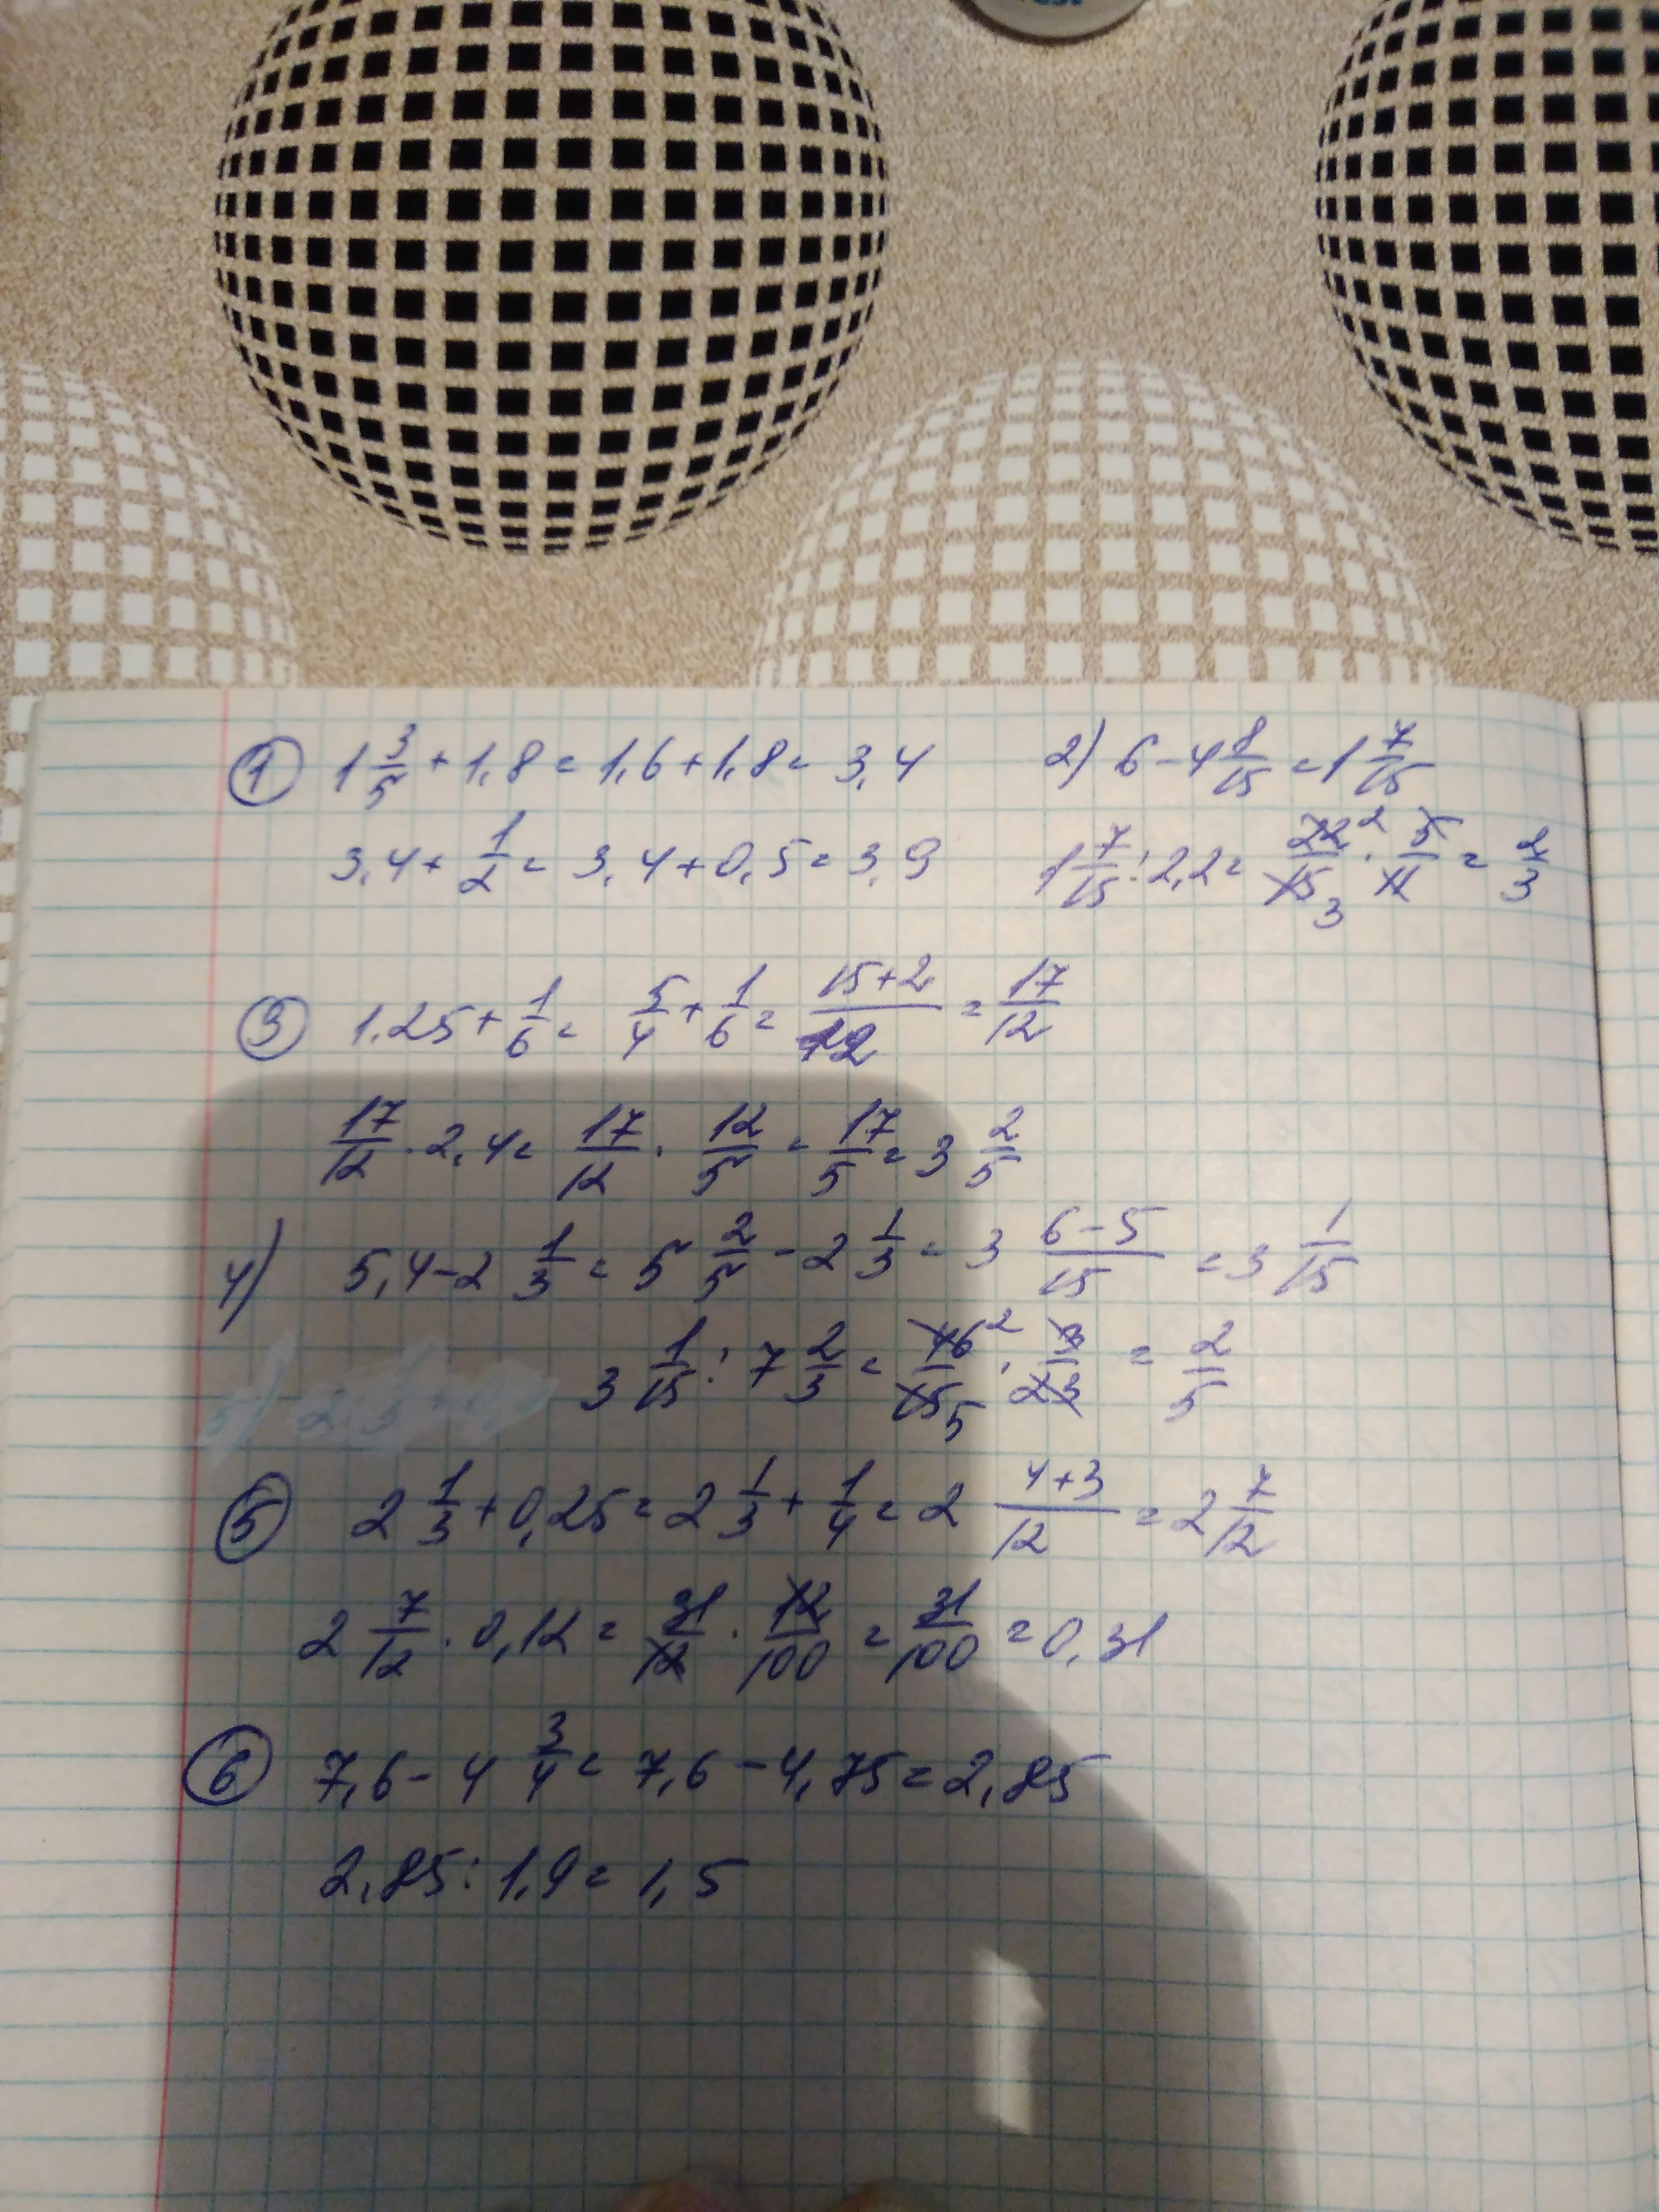 ① 1 3/5 + 1,8 = 1,6 + 1,8 = 3,4
3,4 + 1/2 = 3,4 + 0,5 = 3,9
2) 6 - 4 8/15 = 1 7/15
1 7/15 : 2,2 = 22/15 · 5/11 = 2/3
2
3
③ 1.25 + 1/6 = 5/4 + 1/6 = (15+2)/12 = 17/12
17/12 · 2,4 = 17/12 · 12/5 = 17/5 = 3 2/5
4) 5,4 - 2 1/3 = 5 2/5 - 2 1/3 = 3 (6-5)/15 = 3 1/15
3 1/15 : 7 2/3 = 46/15 · 3/23 = 2/5
2
5
⑤ 2 1/3 + 0,25 = 2 1/3 + 1/4 = 2 (4+3)/12 = 2 7/12
2 7/12 · 0,12 = 31/12 · 12/100 = 31/100 = 0,31
⑥ 7,6 - 4 3/4 = 7,6 - 4,75 = 2,85
2,85 : 1,9 = 1,5